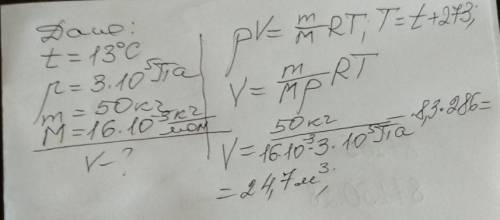 Дано:
t = 13°C
p = 3·10⁵Па
m = 50кг
M = 16·10⁻³ кг/моль
V - ?
pV = m/M RT; T = t + 273;
V = m/Mp RT
V = 50кг/16·10⁻³·3·10⁵Па ·8,3·286 =
= 24,7м³;